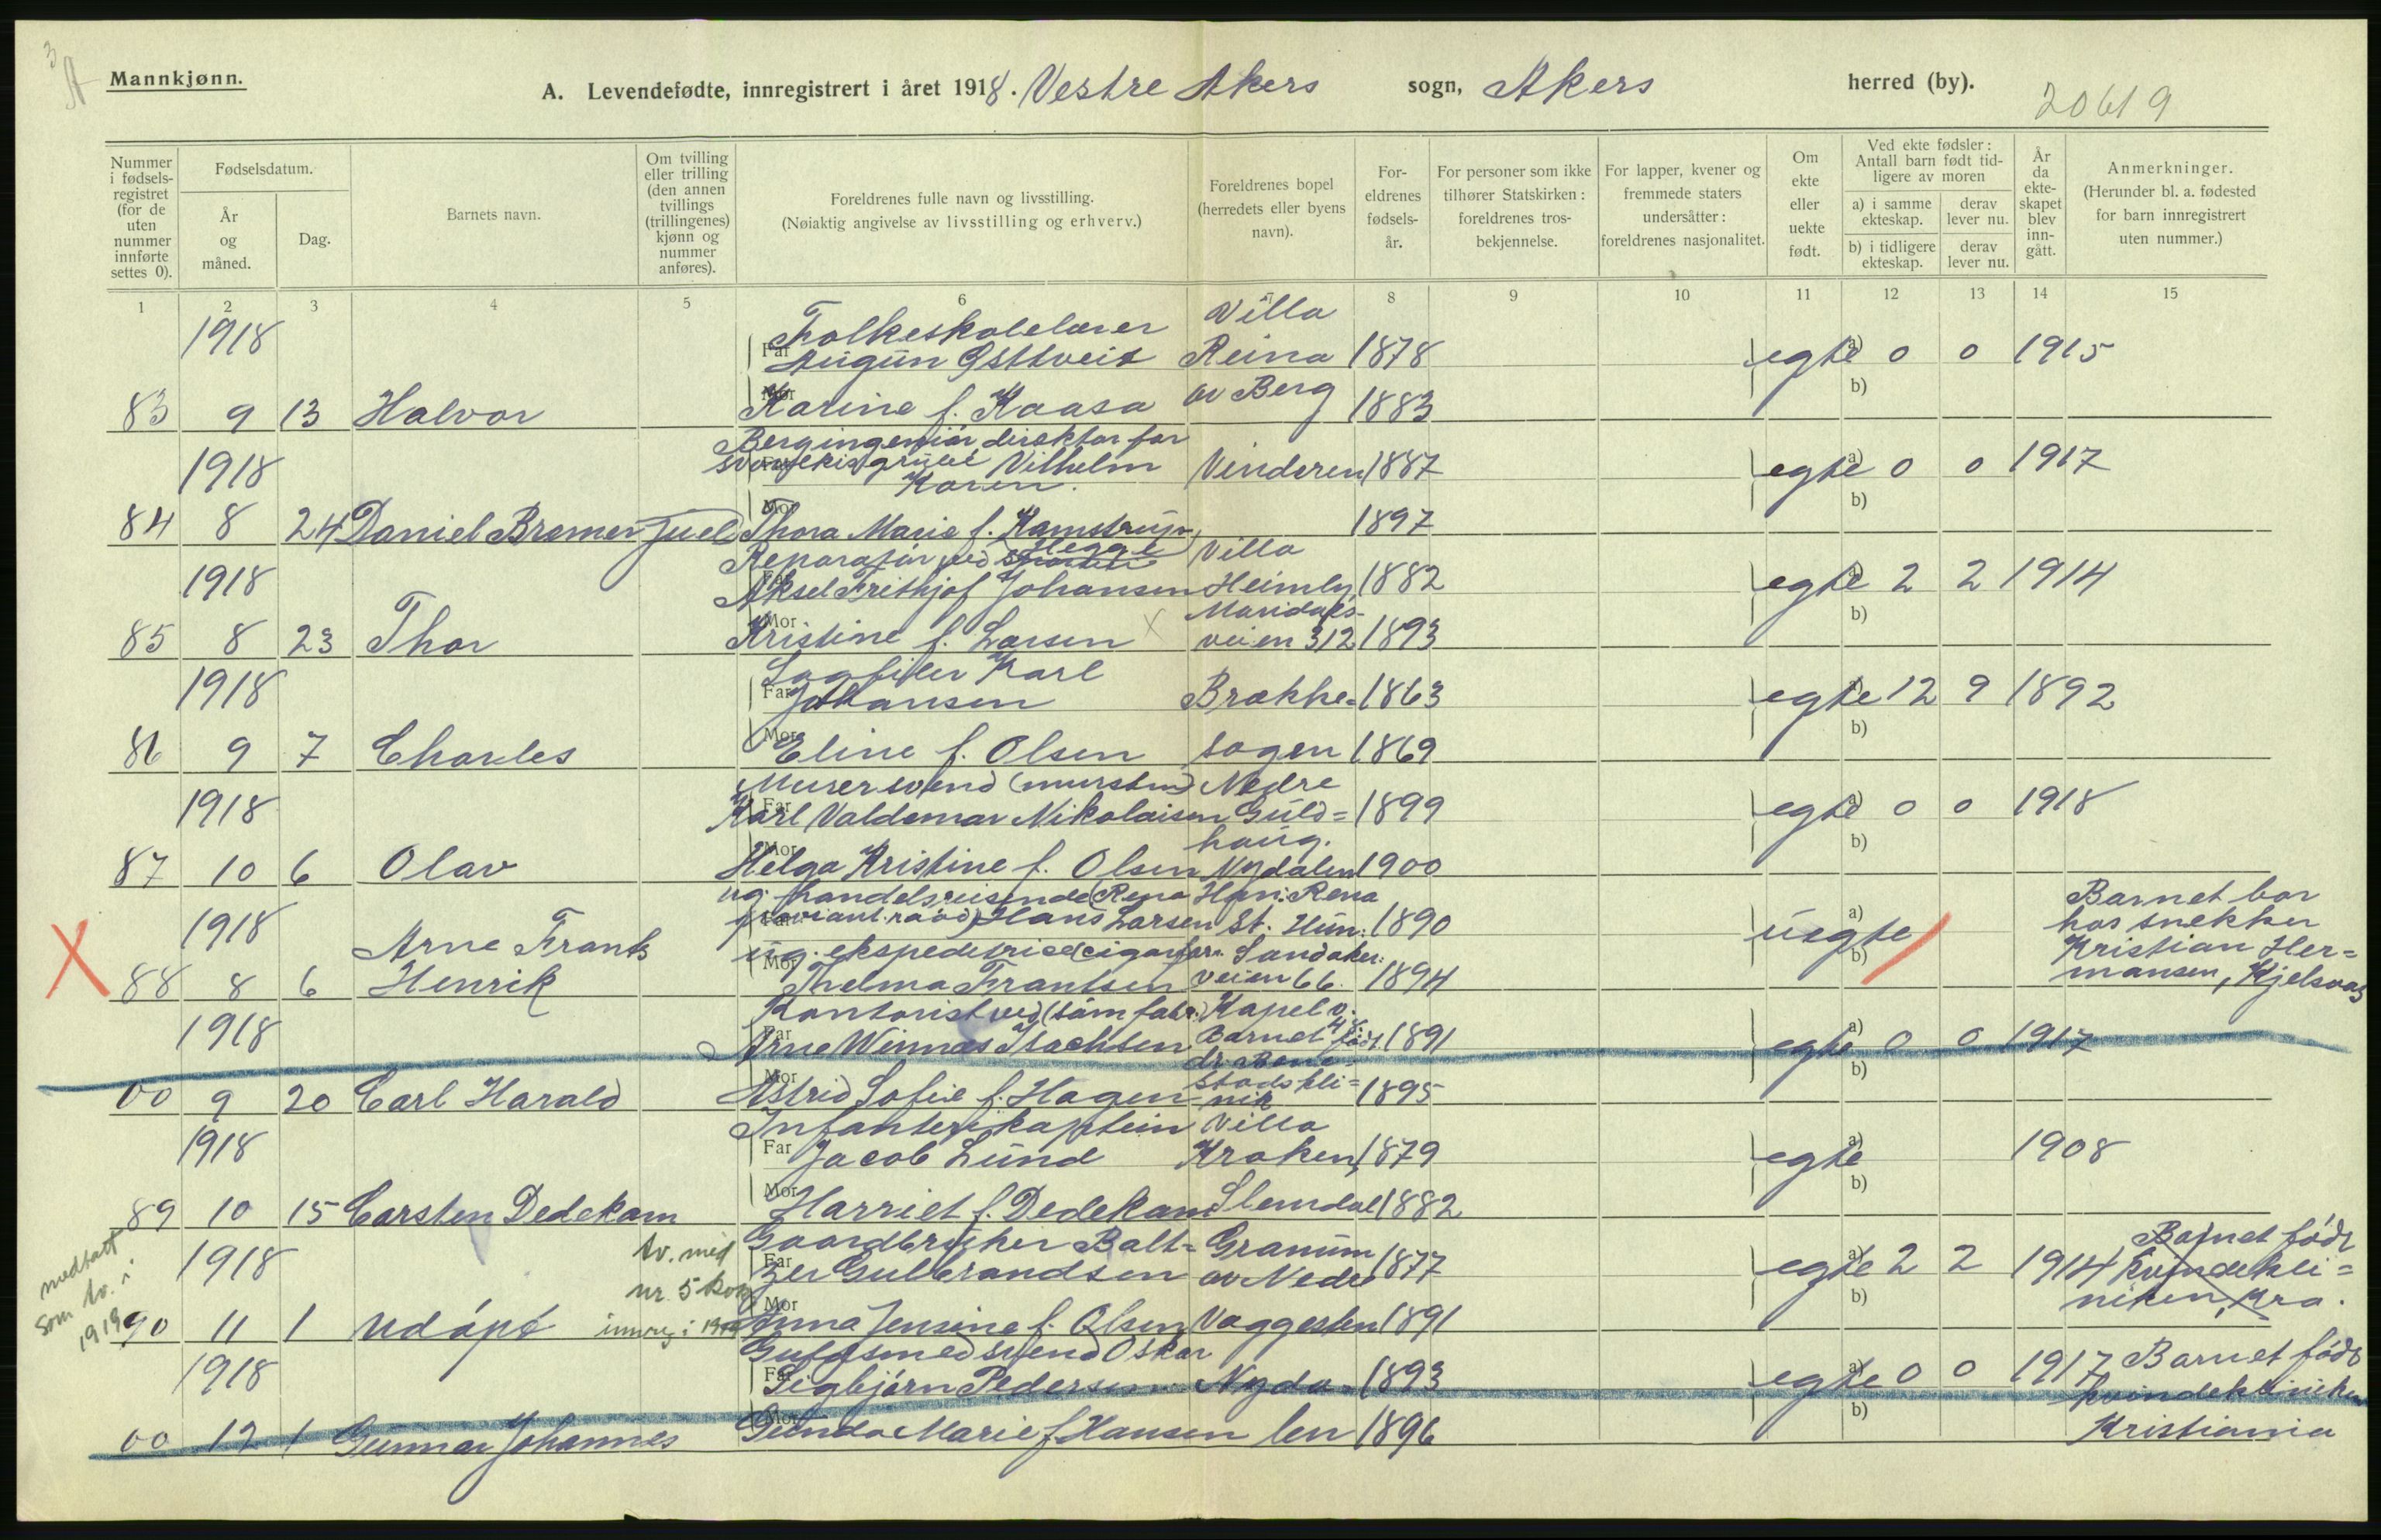 3
Mannkjønn.
A. Levendefødte, innregistrert i året 1918. Vestre Akers sogn, Akers herred (by).
20619
Nummer i fødsels-registret (for de uten nummer innførte settes 0).
Fødselsdatum.
År og måned.
Dag.
Barnets navn.
Om tvilling eller trilling (den annen tvillings (trillingenes) kjønn og nummer anføres).
Foreldrenes fulle navn og livsstilling.
(Nøiaktig angivelse av livsstilling og erhverv.)
Foreldrenes bopel (herredets eller byens navn).
For-eldrenes fødsels-år.
For personer som ikke tilhører Statskirken: foreldrenes tros-bekjennelse.
For lapper, kvener og fremmede staters undersåtter: foreldrenes nasjonalitet.
Om ekte eller uekte født.
Ved ekte fødsler: Antall barn født tid-ligere av moren
a) i samme ekteskap.
derav lever nu.
b) i tidligere ekteskap.
derav lever nu.
År da ekte-skapet blev inn-gått.
Anmerkninger.
(Herunder bl. a. fødested for barn innregistrert uten nummer.)
1 2 3 4 5 6 8 9 10 11 12 13 14 15
Folkeskolelærer Villa
1918 Far Augun Østtveit Reina 1878 egte a) 0 0 1915
83 9 13 Halvor Mor Karine f. Kaasa av Berg 1883 b)
Bergingeniør direktør for
1918 Vilhelm Vinderen 1887 egte a) 0 0 1917
Koren.
84 8 24 Daniel Bremer Juell Mor Thora Marie f. Kamstrup 1897 b)
Reparatør ved Villa
1918 Aksel Frithjof Johansen Heimly 1882 egte a) 2 2 1914
Maridals-
85 8 23 Thor Mor Kristine f. Larsen veien 312 1893 b)
Sagfiler Karl
1918 Far Johansen Brække= 1863 egte 12 9 1892
86 9 7 Charles Mor Eline f. Olsen sagen 1869 b)
Murersvend (murstm) Nedre
1918 Far Karl Valdemar Nikolaisen Guld= 1899 egte a) 0 0 1918
haug.
87 10 6 Olav Mor Helga Kristine f. Olsen Nydalen 1900 b)
ug. handelsreisende (Rena Han: Rena
1918 proviant.raad) Hans Larsen St. Hun: 1890 uegte a) Barnet bor hos snekker
Arne Frank ug. ekspeditrise (cigarforr. Sandaker: b) Kristian Her=
88 8 6 Henrik Mor Thelma Frantsen veien 66. 1894 mansen, Kjelsaas
Kontorist ved (søm fabr.) Kapel v.
1918 Far Arne Winnæs Isachsen Barnet født 1891 egte a) 0 0 1917
00 9 20 Carl Harald Mor Astrid Sofie f. Hagen stads kli=nik 1895 b)
Infanterikaptein Villa
1918 Far Jacob Lund Kroken, 1879 egte a) 1908
89 10 15 Carsten Dedekam Mor Harriet f. Dedekam Slemdal 1882 b)
medtatt som tv. i 1919
tv. med nr. 5 kvkj innreg i
Gaardbruker Balt= Granum Barnet født
1918 Far zer Gulbrandsen av Nedre 1877 egte a) 2 2 1914 kvindekli=
niken, Kra.
90 11 1 udøpt Mor Anna Jensine f. Olsen Vaggesten 1891 b)
Gullsmedsvend Oskar
1918 Far Sigbjørn Pedersen Nyda= 1893 egte a) 0 0 1917 Barnet født
kvindekliniken
00 12 1 Gunnar Johannes Mor Gunda Marie f. Hansen len 1896 b) Kristiania